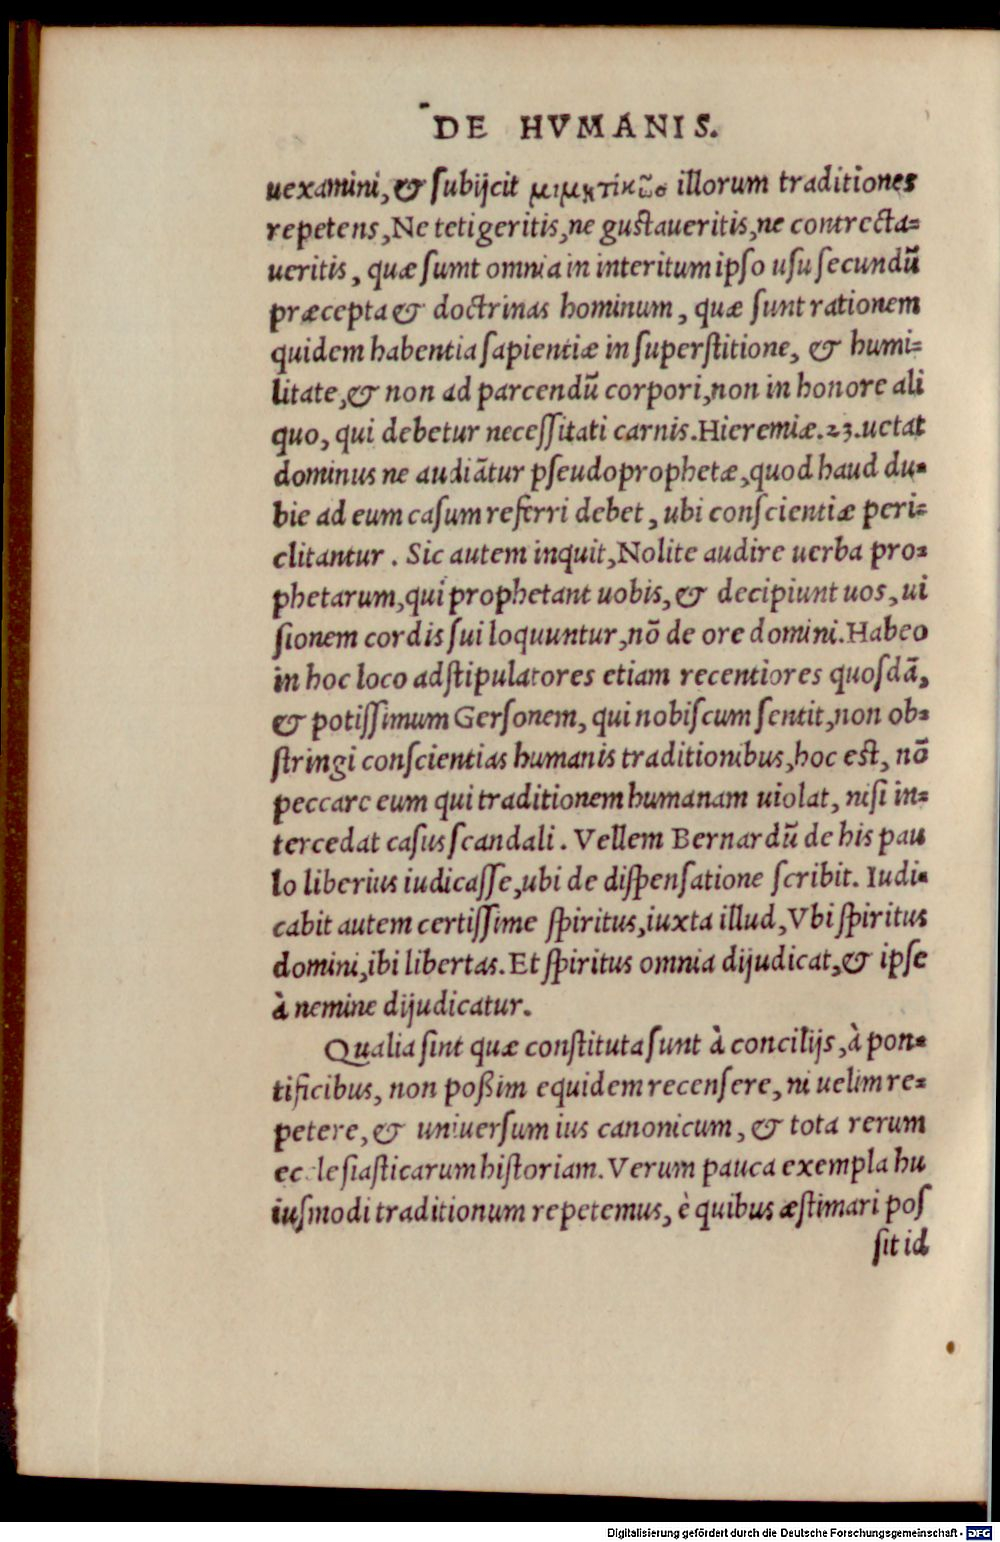 DE HVMANIS.
uexamini, & subijcit μιμητικῶσ illorum traditiones
repetens, Ne tetigeritis, ne gustaueritis, ne contrecta=
ueritis, quæ sunt omnia in interitum ipso usu secundũ
præcepta & doctrinas hominum, quæ sunt rationem
quidem habentia sapientiæ in superstitione, & humi=
litate, & non ad parcendũ corpori, non in honore ali
quo, qui debetur necessitati carnis. Hieremiæ. 23. uetat
dominus ne audiãtur pseudoprophetæ, quod haud du=
bie ad eum casum referri debet, ubi conscientiæ peri=
clitantur. Sic autem inquit, Nolite audire uerba pro=
phetarum, qui prophetant uobis, & decipiunt uos, ui
sionem cordis sui loquuntur, nõ de ore domini. Habeo
in hoc loco adstipulatores etiam recentiores quosdã,
& potissimum Gersonem, qui nobiscum sentit, non ob=
stringi conscientias humanis traditionibus, hoc est, nõ
peccare eum qui traditionem humanam uiolat, nisi in=
tercedat casus scandali. Vellem Bernardũ de his pau
lo liberius iudicasse, ubi de dispensatione scribit. Iudi=
cabit autem certissime spiritus, iuxta illud, Vbi spiritus
domini, ibi libertas. Et spiritus omnia dijudicat, & ipse
à nemine dijudicatur.
Qualia sint quæ constituta sunt à concilijs, à pon=
tificibus, non poßim equidem recensere, ni uelim re=
petere, & uniuersum ius canonicum, & tota rerum
ecclesiasticarum historiam. Verum pauca exempla hu
iusmodi traditionum repetemus, è quibus æstimari pos
sit id
Digitalisierung gefördert durch die Deutsche Forschungsgemeinschaft - DFG